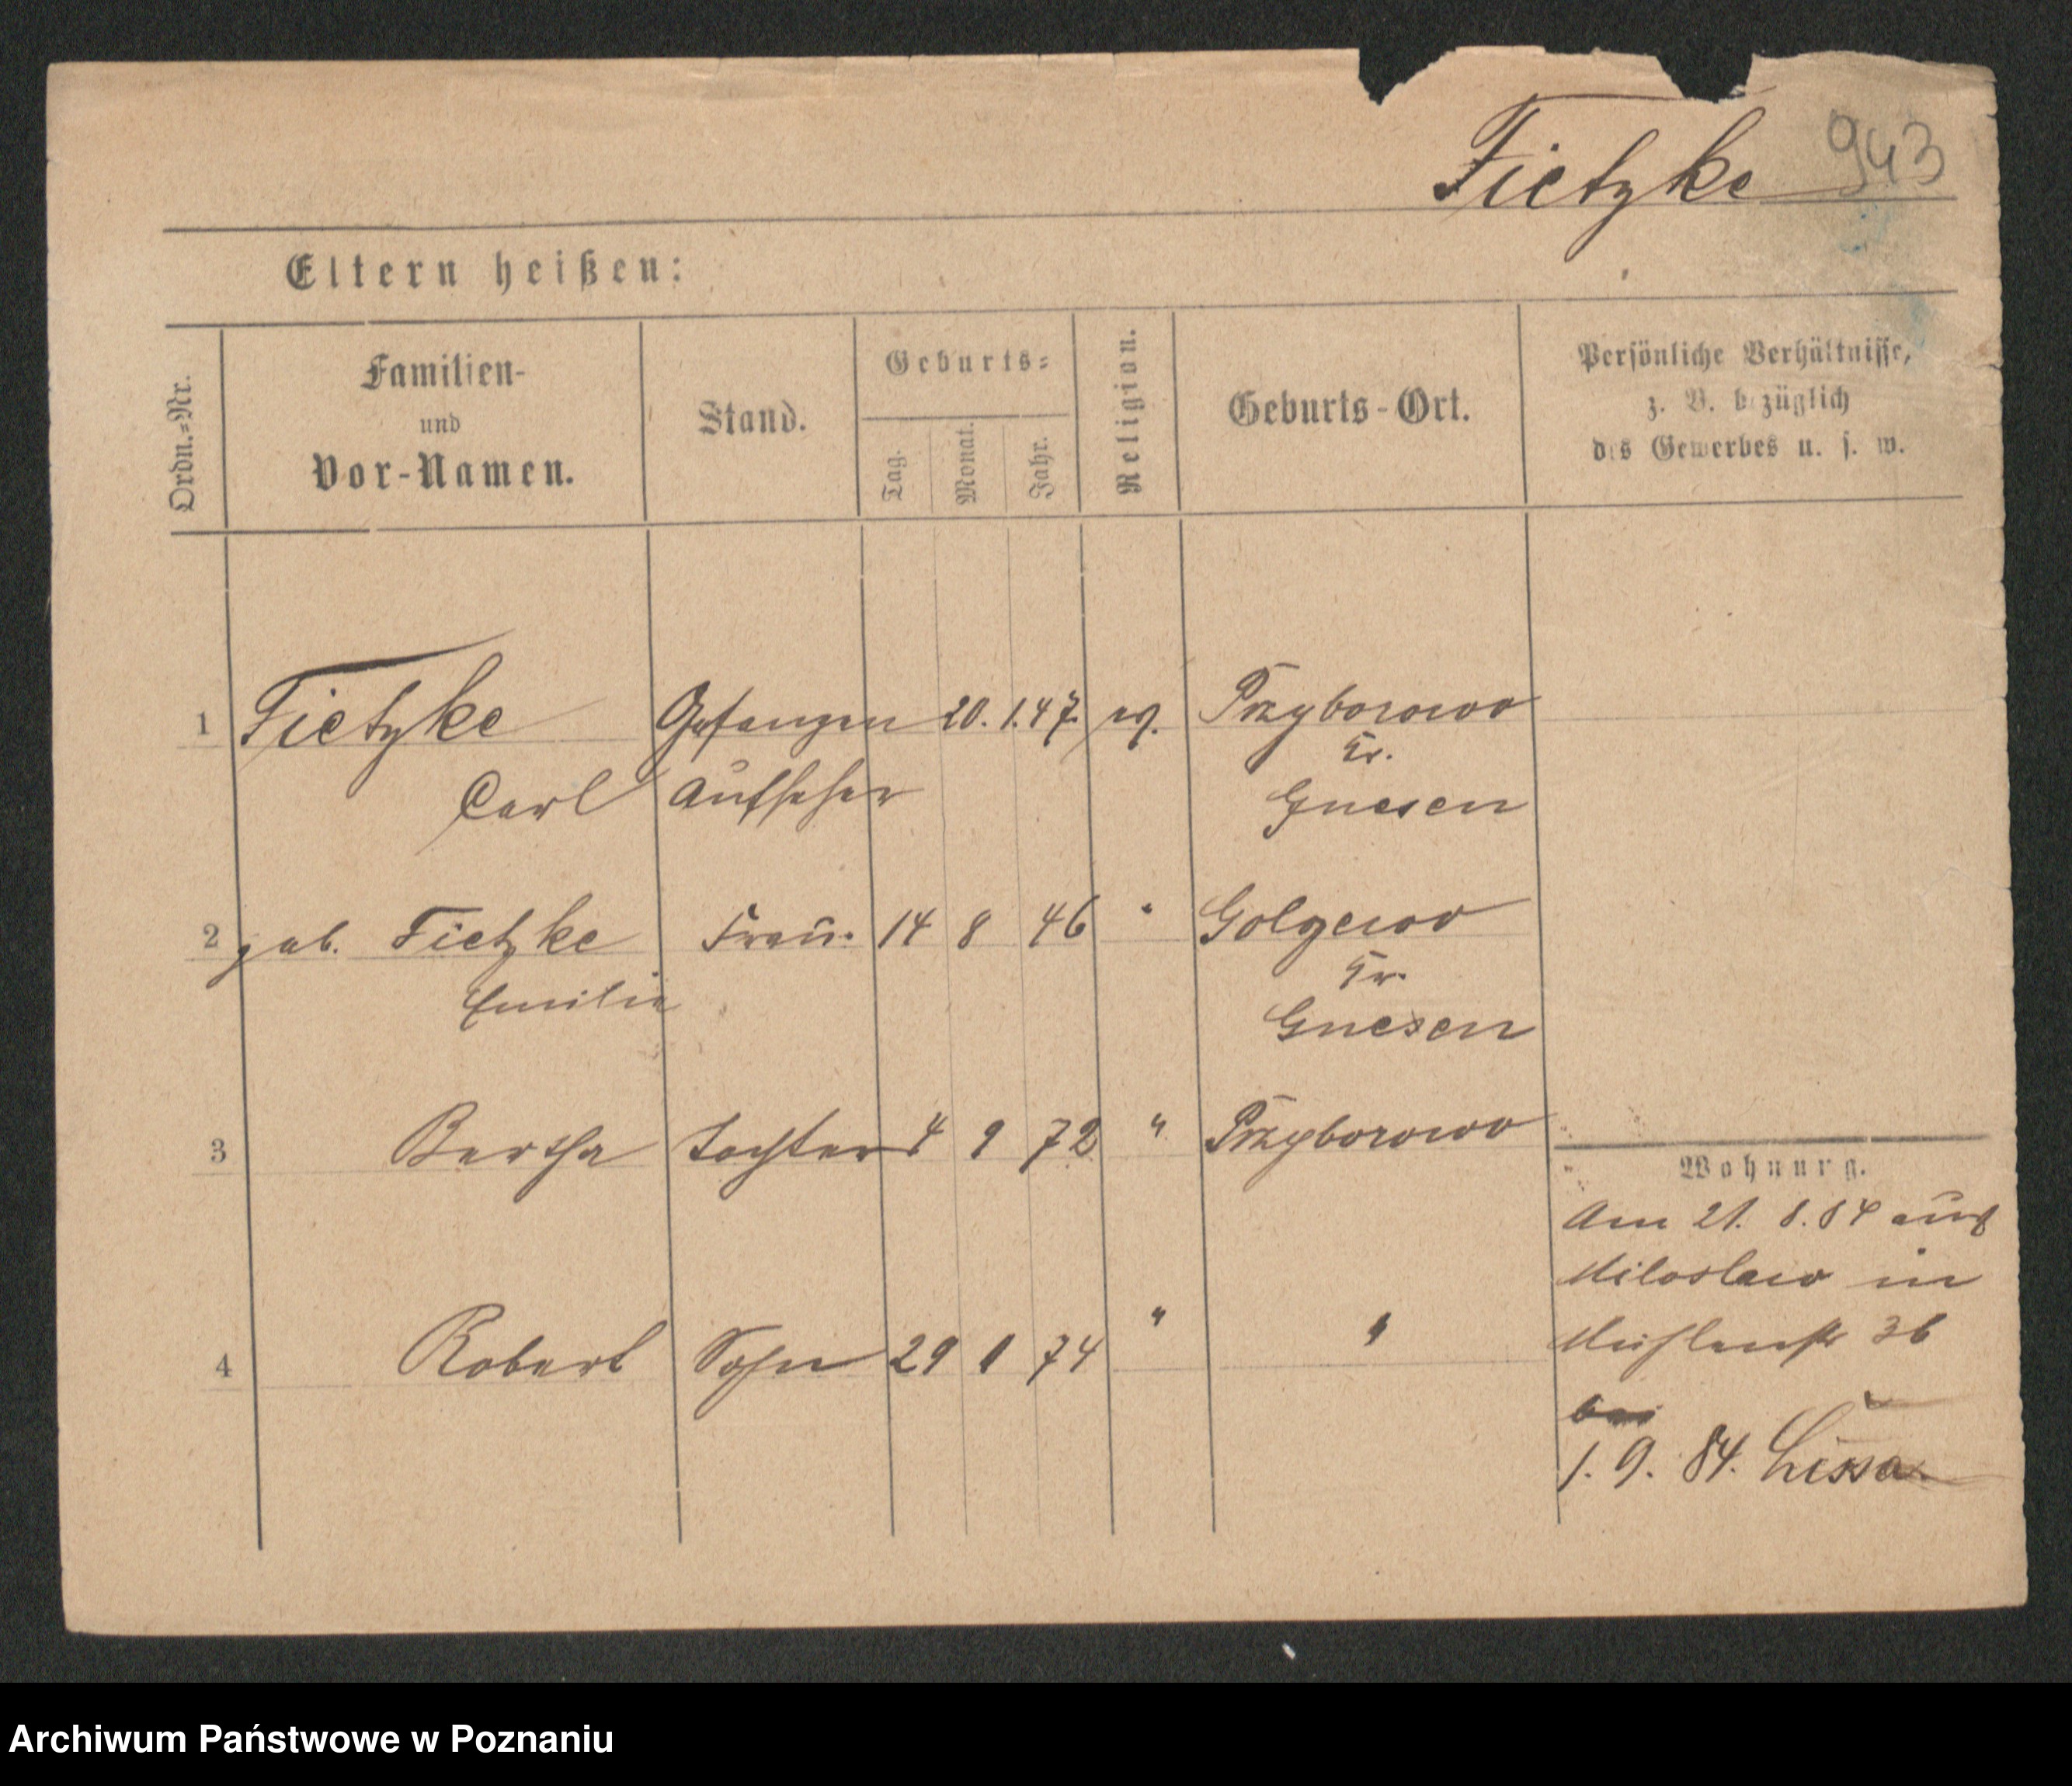 943
Fietzke
Eltern heißen:
Ordn.=Nr.
Familien-
und
Vor-Namen.
Stand.
Geburts=
Tag.
Monat.
Jahr.
Religion.
Geburts-Ort.
Persönliche Verhältnisse,
z. B. bezüglich
des Gewerbes u. s. w.
1 Fietzke Gefangen 20. 1. 47. ev. Przyborowo
Kr.
Carl Aufseher Gnesen
2 geb. Fietzke Frau. 14 8 46 " Golgewo
Kr.
Emilie Gnesen
3 Bertha Tochter 4 9 72 " Przyborowo
Wohnung.
Am 21. 8. 84 aus
Miloslaw in
Mühlenstr 36
4 Robert Sohn 29 1 74 " "
bei
1. 9. 84. Lissa.
Archiwum Państwowe w Poznaniu